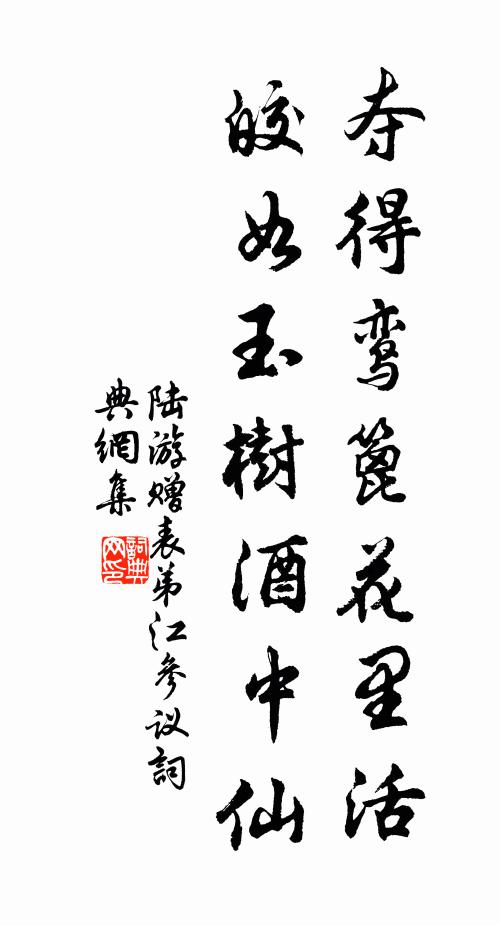 夺得鸾篦花里活
皎如玉樹酒中仙
陆游赠表弟江參议詞
典網集
詞典网印